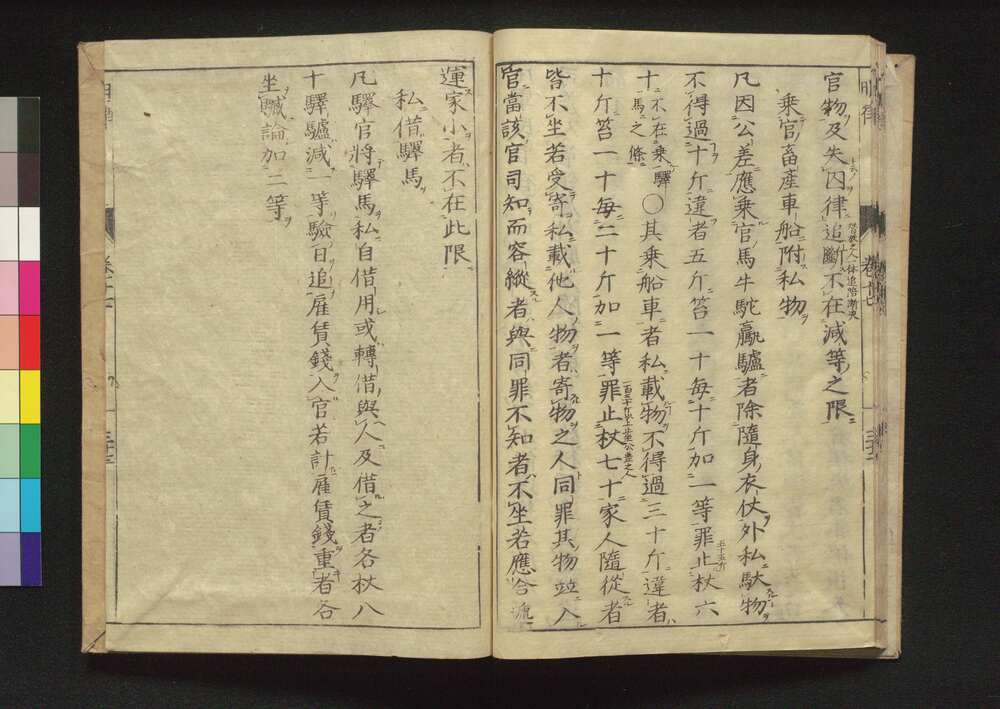 官物及失囚律追斷不在減等之限
乘官畜產車船附私物
凡因公差應乘官馬牛駝驘驢者除隨身衣仗外私馱物
不得過十斤違者五斤笞一十每十斤加一等罪止杖六
十不在乘驛馬之條〇其乘船車者私載物不得過三十斤違者
十斤笞一十每二十斤加一等罪止杖七十家人隨從者
皆不坐若受寄私載他人物者寄物之人同罪其物竝入
官當該官司知而容縱者與同罪不知者不坐若應合遞
運家小者不在此限
私借驛馬
凡驛官將驛馬私自借用或轉借與人及借之者各杖八
十驛驢減一等驗日追雇賃錢入官若計雇賃錢重者各
坐贓論加二等